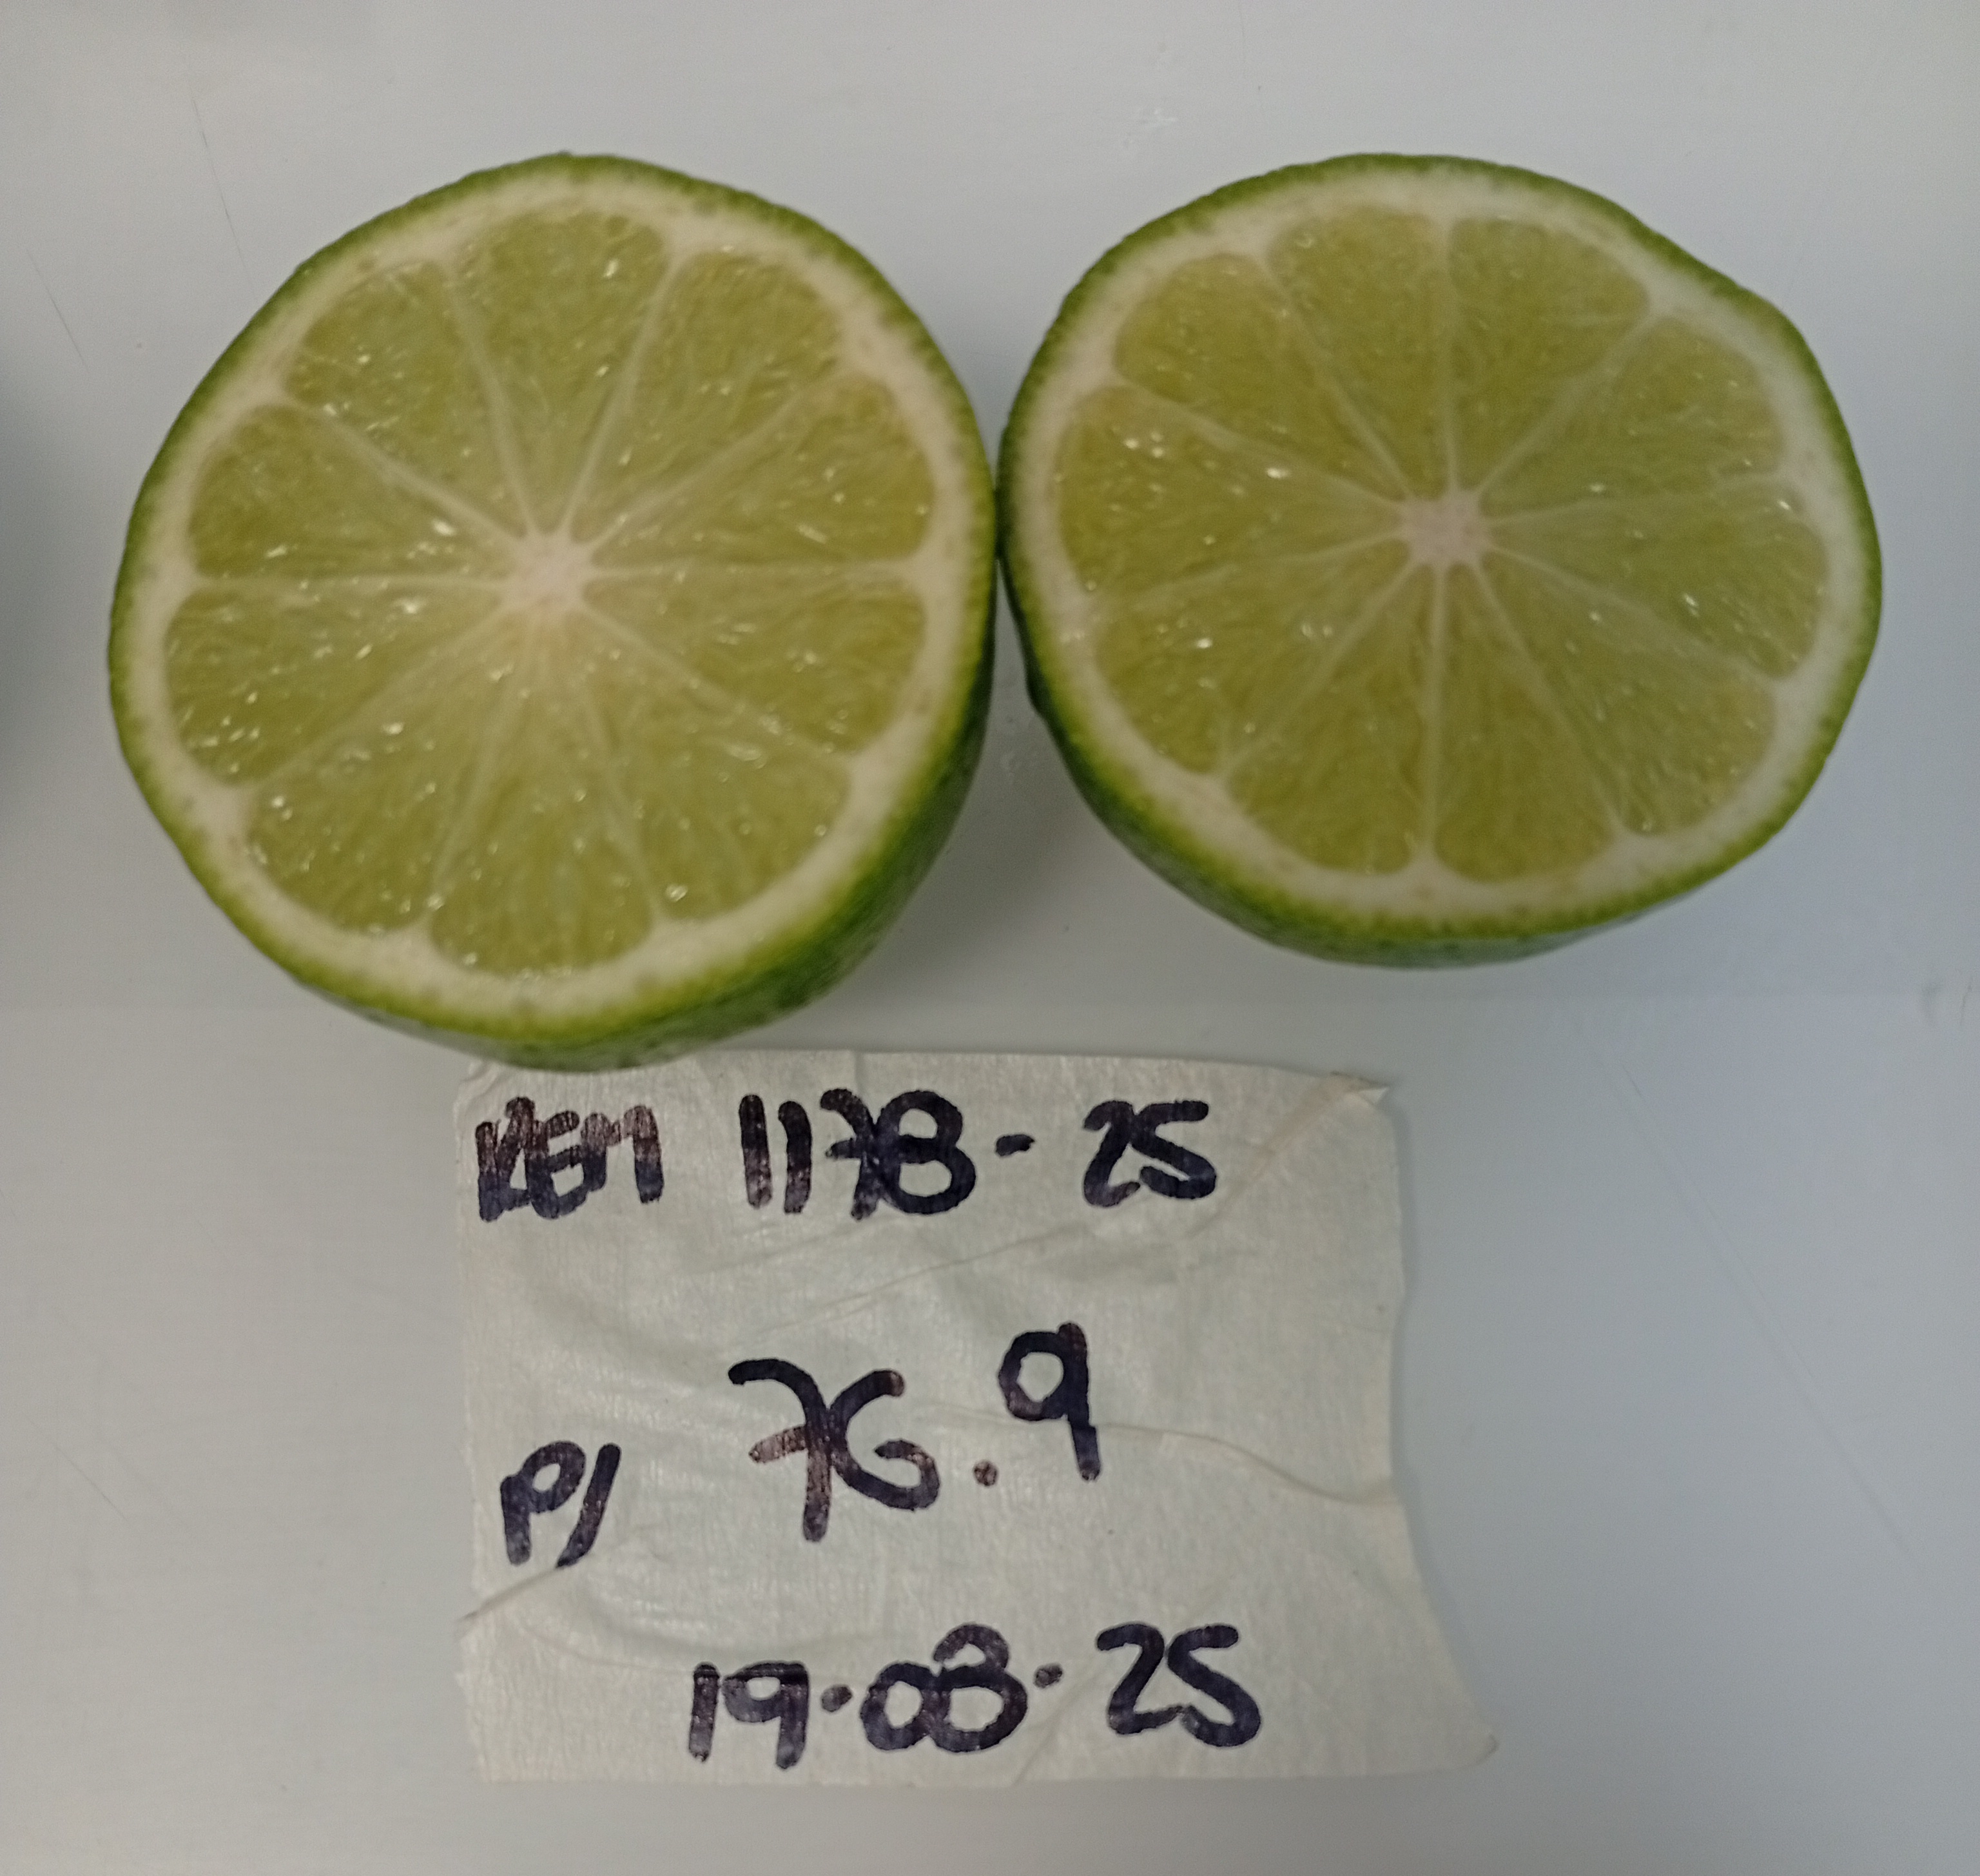 REM 1178-25
P/ 76.9
19-08-25